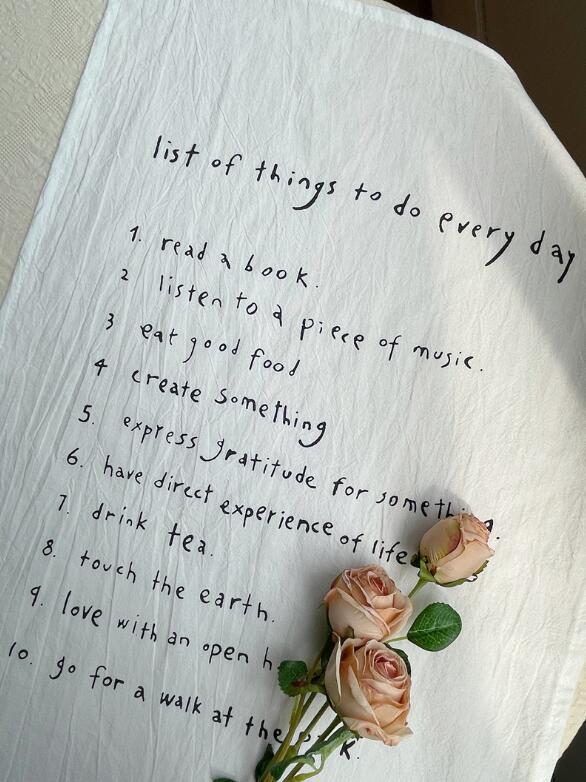 list of things to do every day
1. read a book.
2 listen to a piece of music.
3 eat good food
4 create something
5. express gratitude for
6. have direct experience of life
7. drink tea.
8. touch the earth.
9. love with an open
10. go for a walk at the